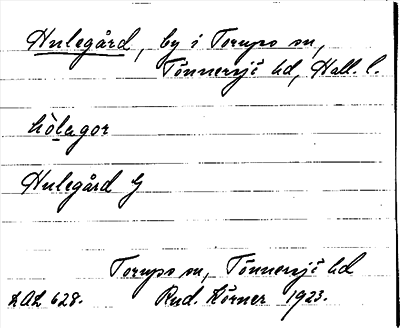 Hulegård, by i Torups sn,
Tönnersjö hd, Hall. l.
hòlagor
Hulegård G
Torups sn, Tönnersjö hd
LAL 628. Rud. Körner 1923.